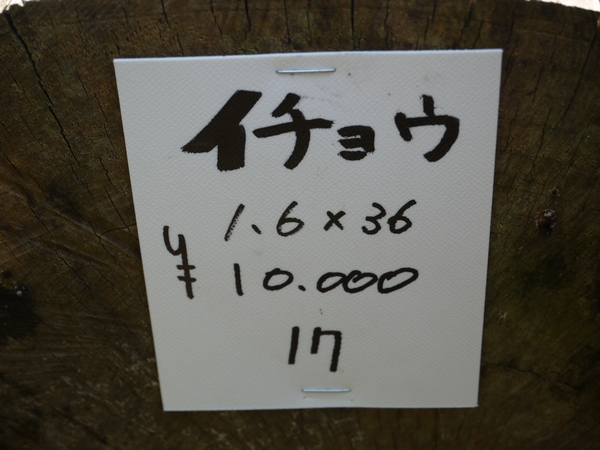 イチョウ
1.6×36
¥10.000
17